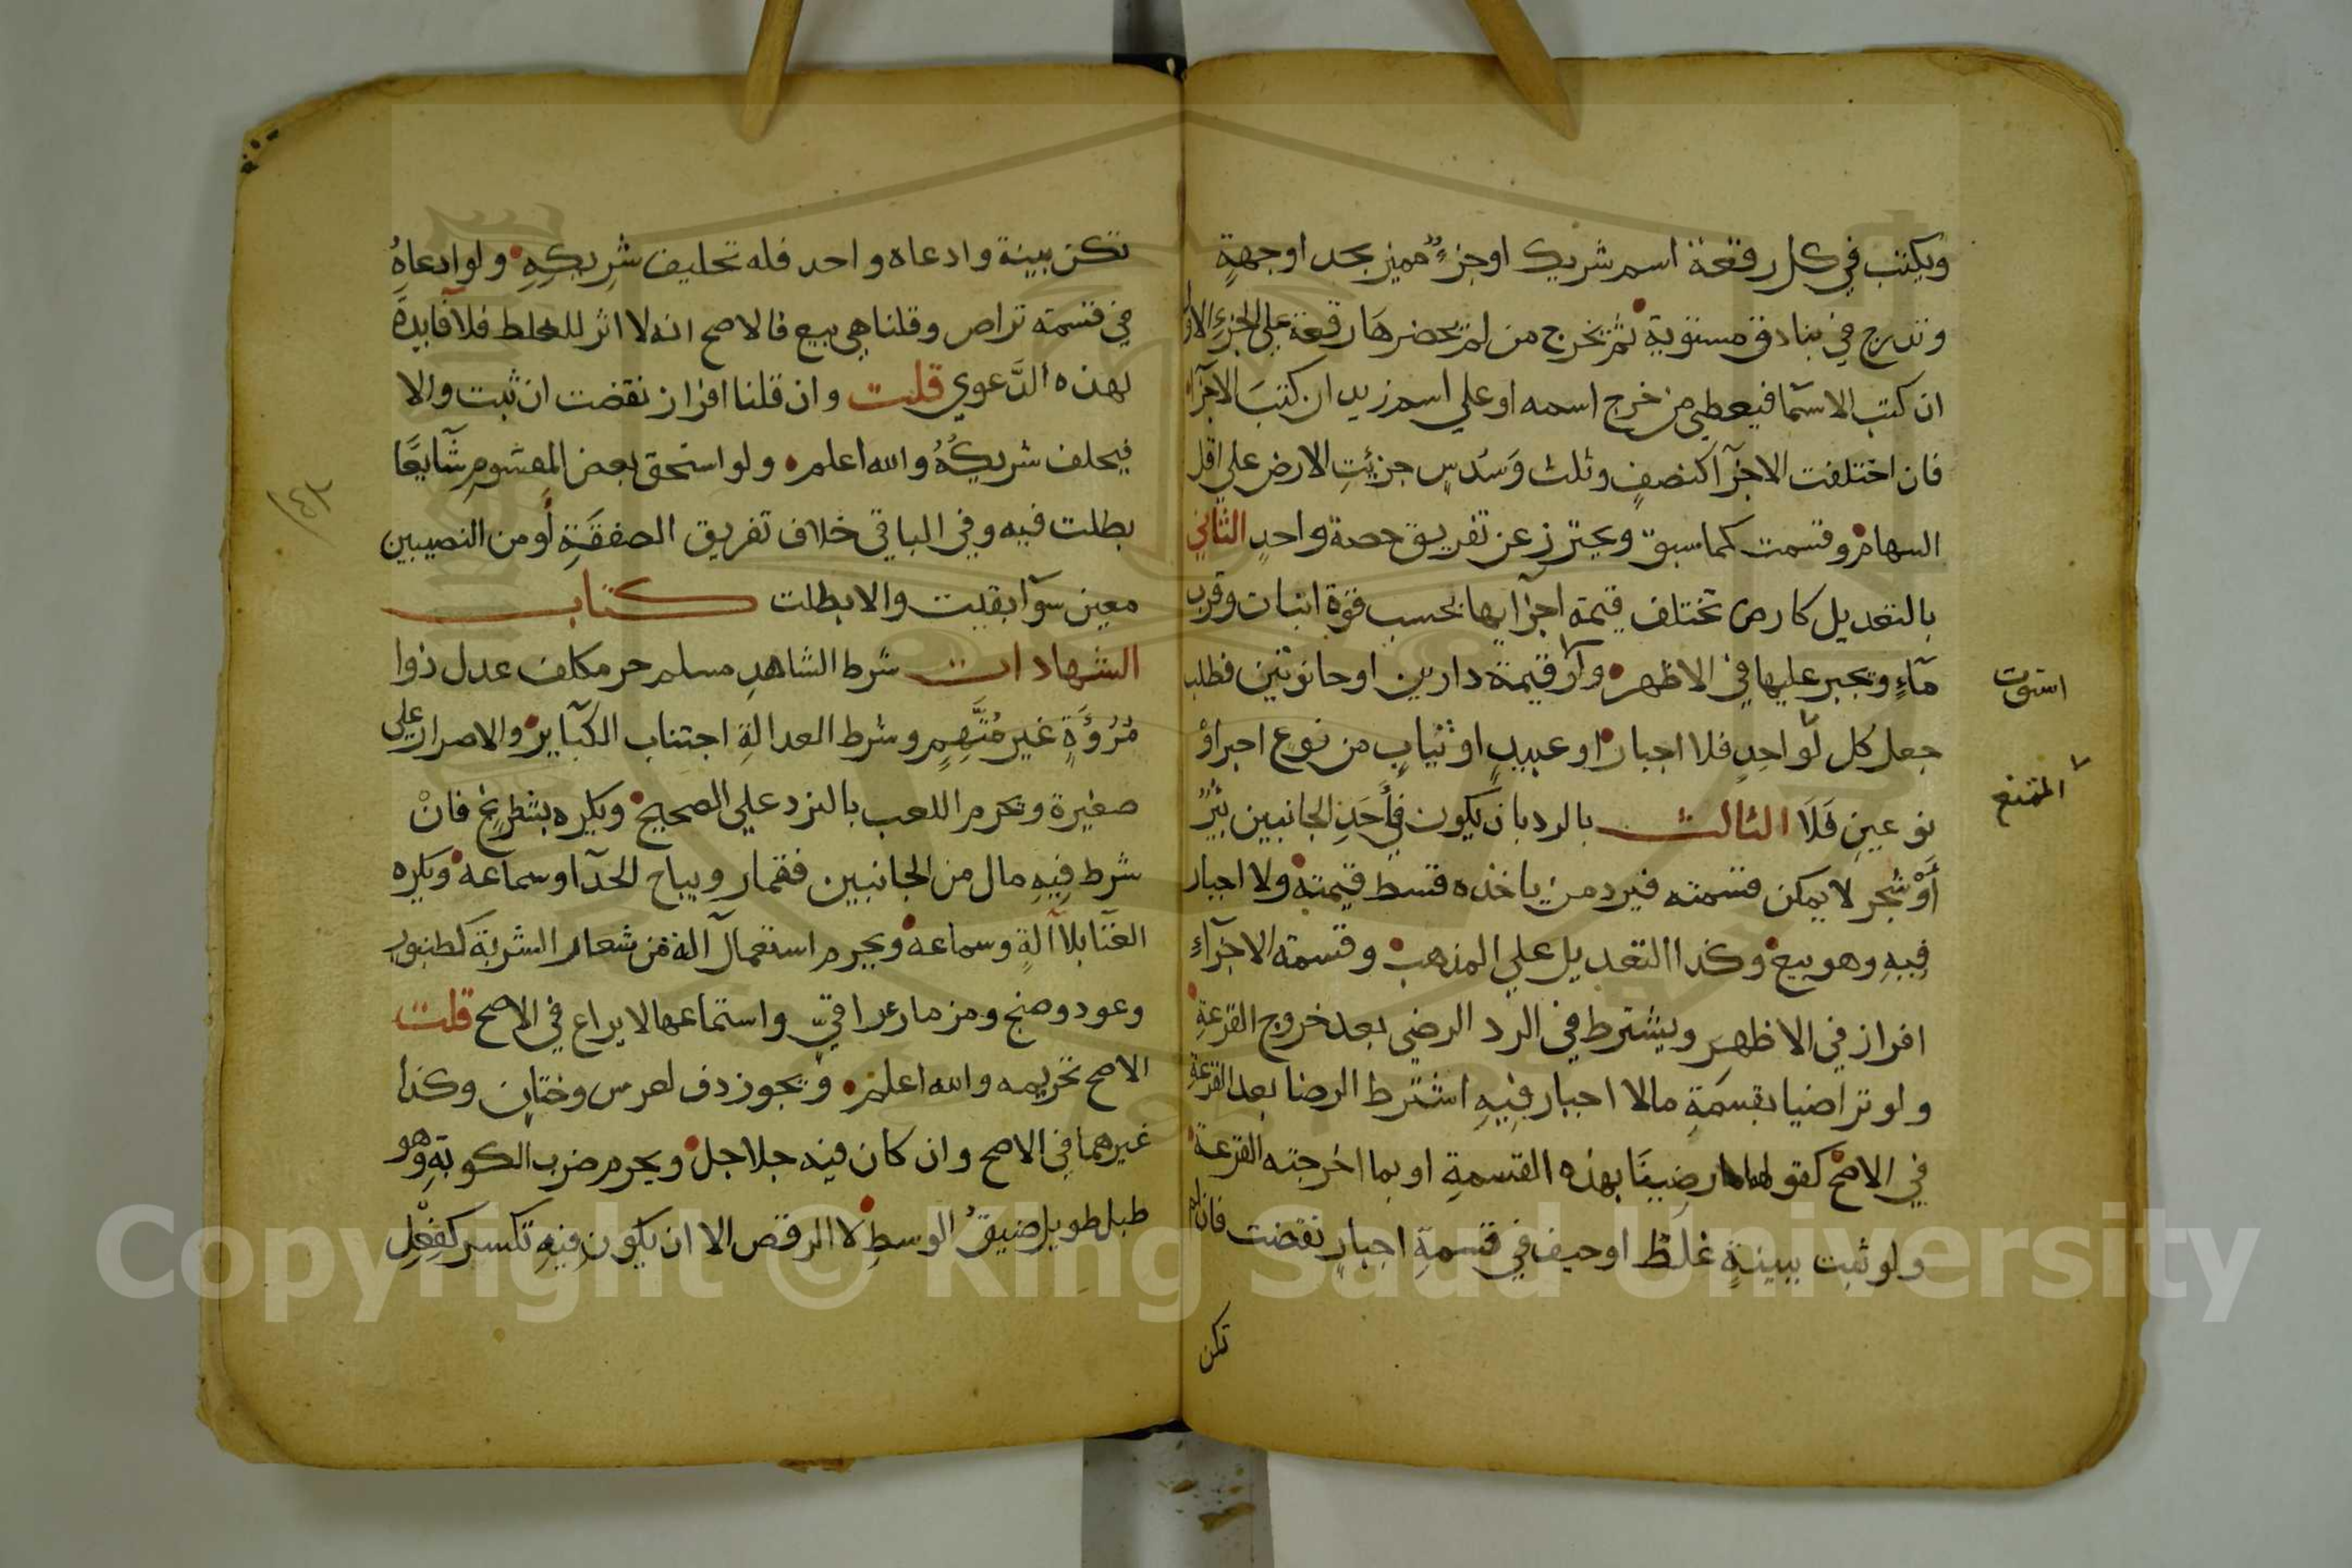 ويكتب في كل رقعة اسم شريك اوجزءٌ مميز بحد اوجهةٍ
وتدرج في بنادق مستوية ثم يخرج من لم يحضرها رقعة علي الجزء الاول
ان كتب الاسمآ فيعطي من خرج اسمه او علي اسم زيد ان كتبَ الاجزآء
فان اختلفت الاجزآ كنصفٍ وثلث وَسُدسٍ جزيَتِ الارض علي اقل
السهام وقسمت كما سبق ويحترز عن تفريق حصة واحدٍ الثاني
بالتعديل كارض تختلف قيمة اجزآيها بحسب قوة انبات وقرب
مآءٍ ويجبر عليها في الاظهر ولو قيمة دارين او حانوتين فطلب
استوت
جعل كل لواحدٍ فلا اجبار او عبيدٍ او ثيابٍ من نوع اجبر اوْ
الممتنع
نوعينِ فَلَا الثالث بالرد بان يكون في أَحَدِ الجانبين بئرٌ
أَوْ شجر لا يمكن قسمته فيرد من ياخذه قسط قيمته ولا اجبار
فِيهِ وهو بيع وكذا التعديل علي المذهب وقسمة الاجزآء
افراز في الاظهر ويشترط في الرد الرضي بعد خروج القرعةِ
ولو تراضيا بقسمَةِ مالا اجبار فِيهِ اشترط الرضا بعد القرعةِ
في الاصح كقولهما رضينَا بهذه القسمةِ او بما اخرجته القرعة
ولو ثبت ببينةٍ غلَط او حيف في قسمةِ اجبارٍ نقضت فان لم
تكن
تكن بينة وادعاه واحد فله تحليف شرِيكِهِ ولو ادعاهُ
في قسمة تراص وقلنا هي بيع فالاصح انه لا اثر للغلط فلا فآيدةَ
لهذه الدَّعوي قلت وان قلنا افراز نقضت ان ثبت والا
فيحلف شريكُهُ والله اعلم ولو استحق بعض المقسوم شآيعًا
بطلت فيه وفي الباقي خلاف تفريق الصفقَةِ أومن النصيبين
معين سوآ بقيت والا بطلت كتاب
الشهادات شرط الشاهدِ مسلم حر مكلف عدل ذوا
مُرُوَةٍ غير مُتَّهِمٍ وشرط العدالةِ اجتناب الكبَآير والاصرار علي
صغيرة ويحرم اللعب بالنرد علي الصحيح ويكره بشطرنج فانْ
شرط فِيهِ مال من الجانبين فقمار ويباح الحدآ وسماعه ويكره
الغنَآ بلا آلةٍ وسماعه ويحرم استعمال آلة من شعار الشربة كطنبور
وعود وصنج ومزمار عراقيّ واستماعها لا يراع في الاصح قلت
الاصح تحريمه والله اعلم ويجوز دف لعرس وختان وكذا
غيرهما في الاصح وان كان فيه جلاجل ويحرم ضرب الكوبةِ وهو
طبل طويل ضيقُ الوسطِ لا الرقص الا ان يكون فِيهِ تكسر كفِعْلِ
Copyright © King Saud University